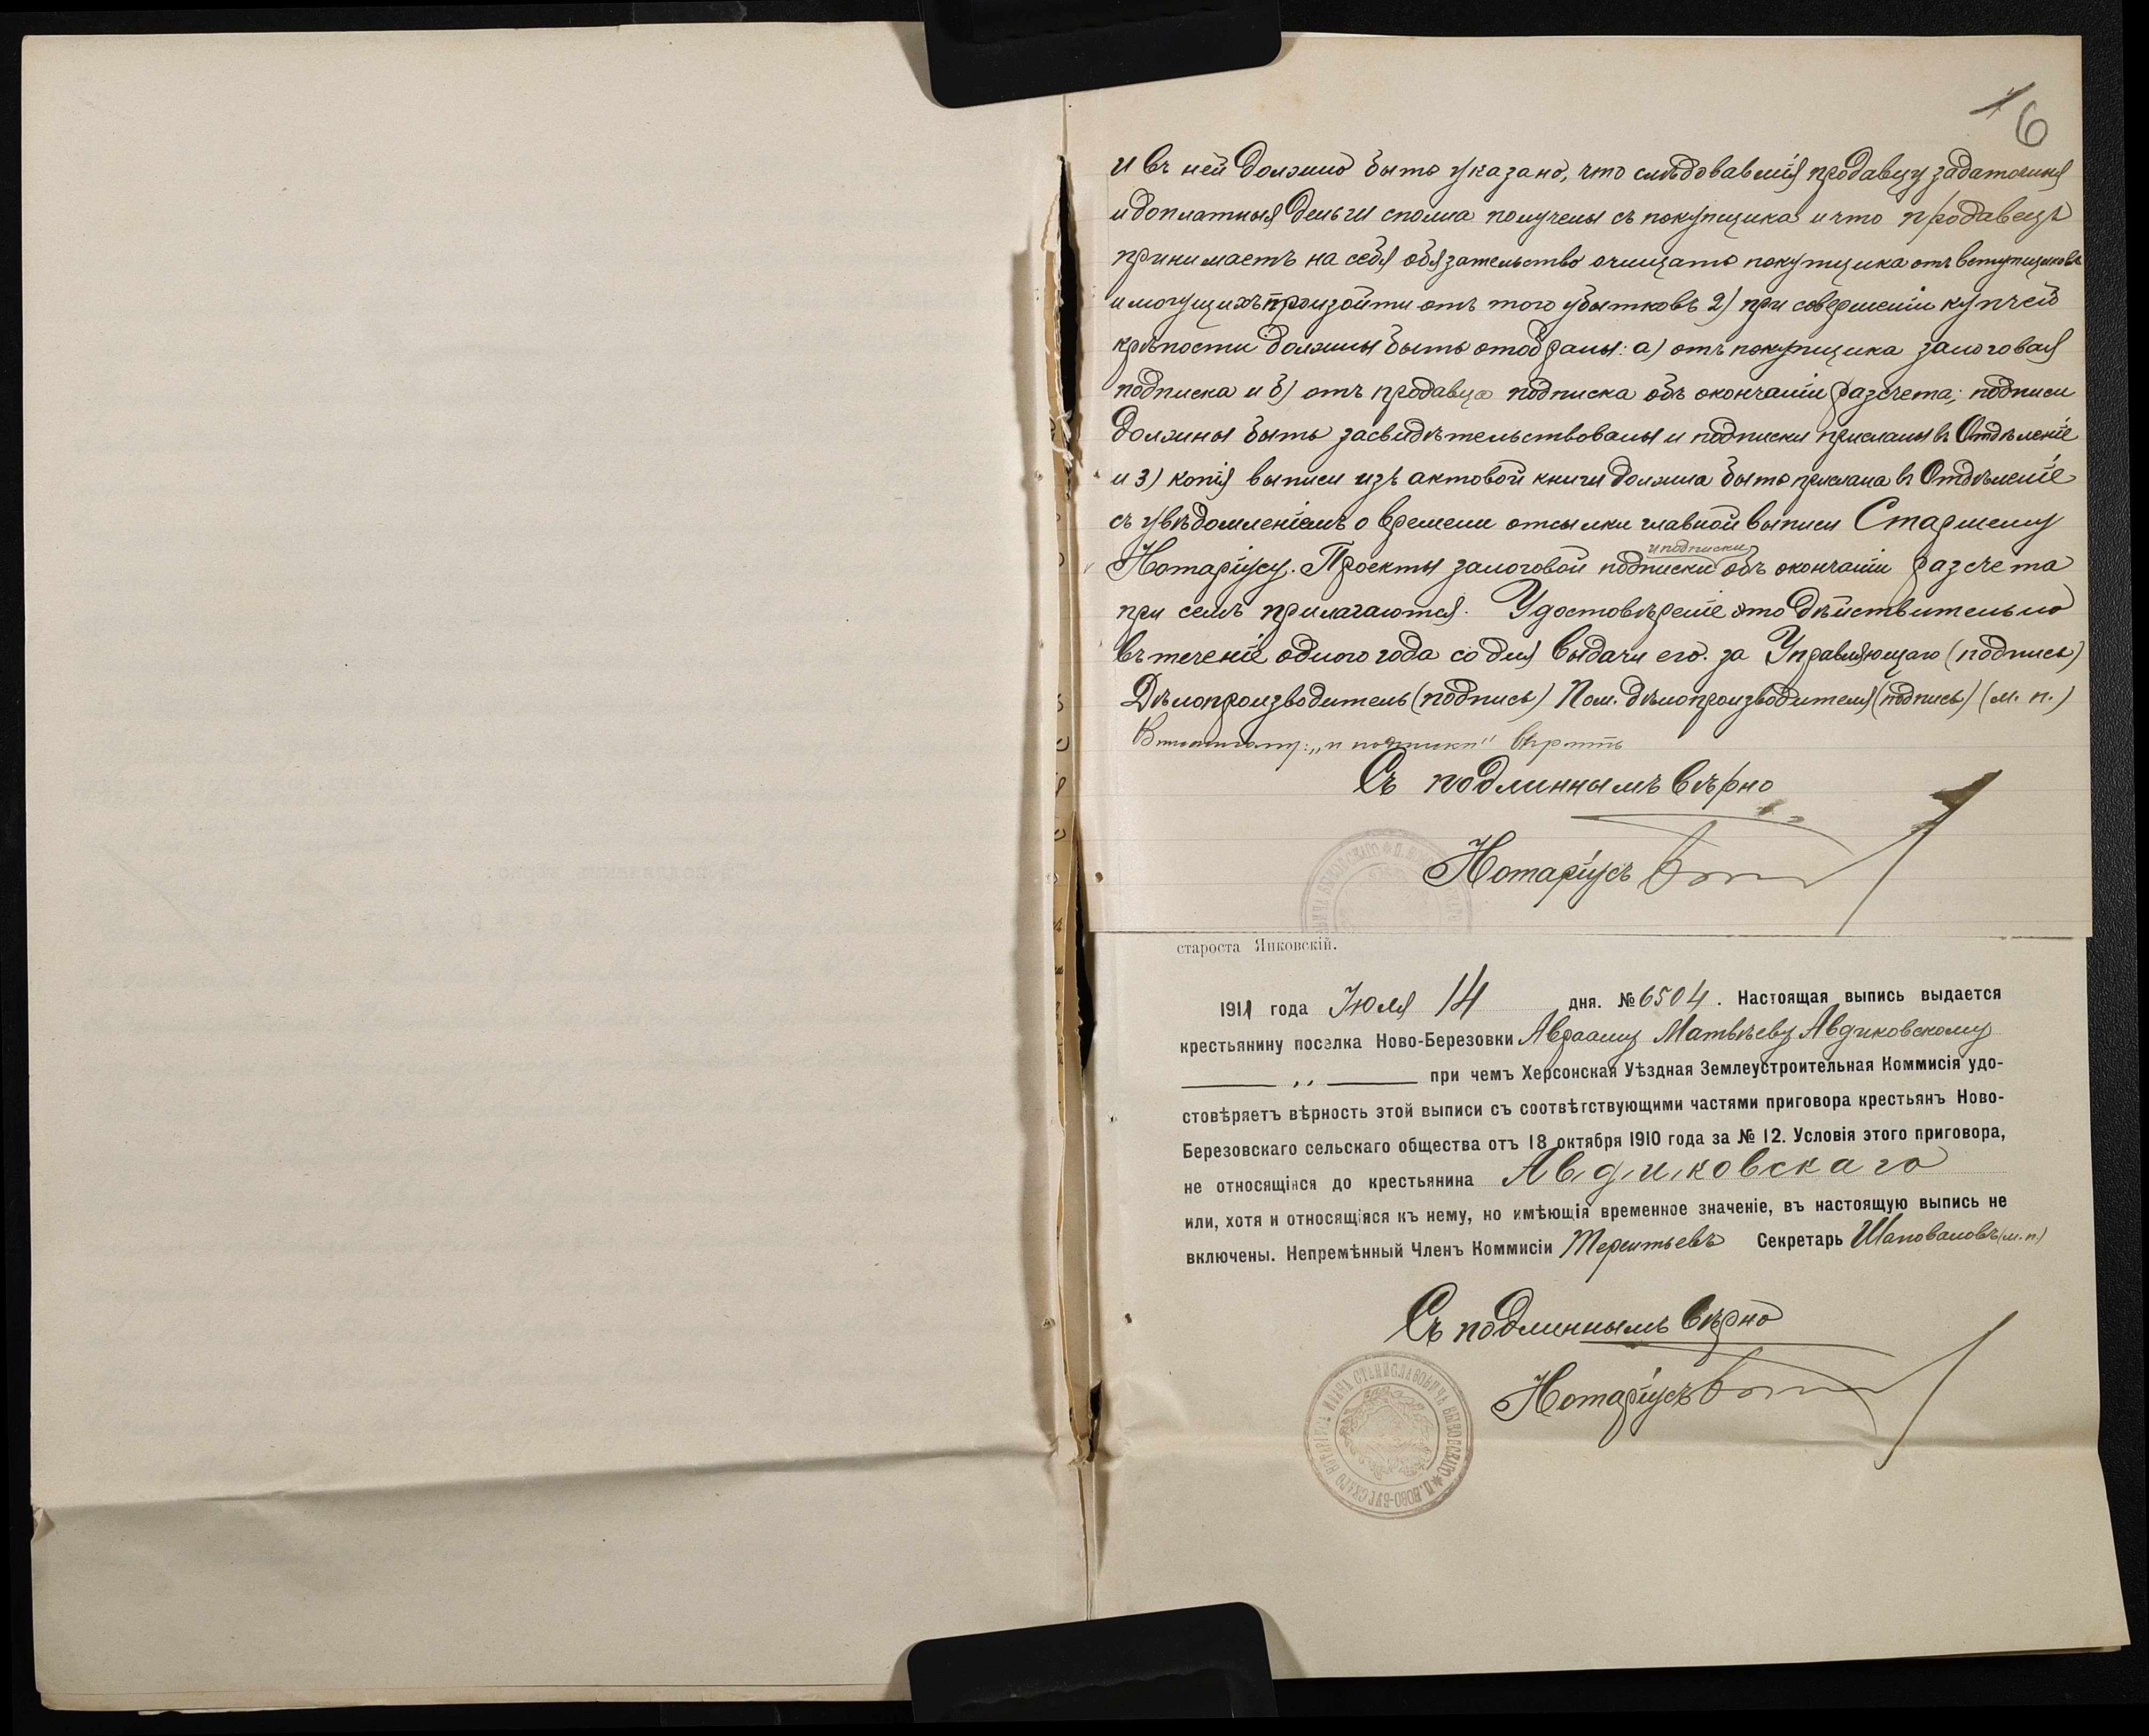 6
и въ ней должно быть указано, что слѣдовавшія продавцу задаточныя
и доплатныя деньги сполна получены съ покупщика и что продавецъ
принимаетъ на себя обязательство очищать покупщика отъ вступщиковъ
и могущихъ произойти отъ того убытковъ 2) при совершеніи купчей
крѣпости должны быть отобраны: а) отъ покупщика залоговая
подписка и б) отъ продавца подписка объ окончаніи разсчета; подписи
должны быть засвидѣтельствованы и подписки присланы въ Отдѣленіе
и 3) копія выписи изъ актовой книги должна быть прислана въ Отдѣленіе
съ увѣдомленіемъ о времени отсылки главной выписи Старшему
и подписки
Нотаріусу. Проекты залоговой подписки объ окончаніи разсчета
при семъ прилагаются. Удостовѣреніе это дѣйствительно
въ теченіе одного года со дня выдачи его. за Управляющаго (подпись)
Дѣлопроизводитель (подпись) Пом. дѣлопроизводителя (подпись) (м. п.)
„и подписки" вѣрить
Съ подлиннымъ вѣрно
Нотаріусъ
староста Янковскій.
1911 года Іюля 14 дня. № 6504. Настоящая выпись выдается
крестьянину поселка Ново-Березовки Аврааму Матвѣеву Авдиковскому
„ при чемъ Херсонская Уѣздная Землеустроительная Коммисія удо-
стовѣряетъ вѣрность этой выписи съ соотвѣтствующими частями приговора крестьянъ Ново-
Березовскаго сельскаго общества отъ 18 октября 1910 года за № 12. Условія этого приговора,
не относящіяся до крестьянина Авдиковскаго
или, хотя и относящіяся къ нему, но имѣющія временное значеніе, въ настоящую выпись не
включены. Непремѣнный Членъ Коммисіи Терентьевъ Секретарь Шаповаловъ (м. п.)
Съ подлиннымъ вѣрно
Нотаріусъ
НОТАРІУСЪ ИВАНЪ СТАНИСЛАВОВИЧЪ П. НОВО-БУГСКАГО